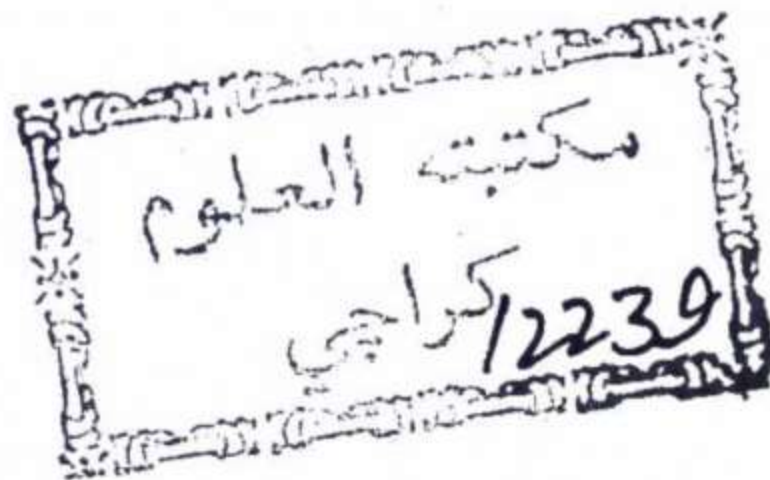 مكتبة العلوم
كراچي 12239